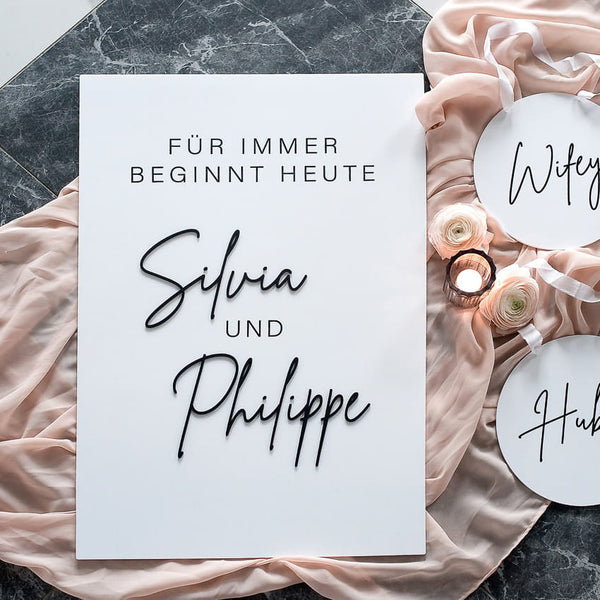 FÜR IMMER
BEGINNT HEUTE
Silvia
UND
Philippe
Wifey